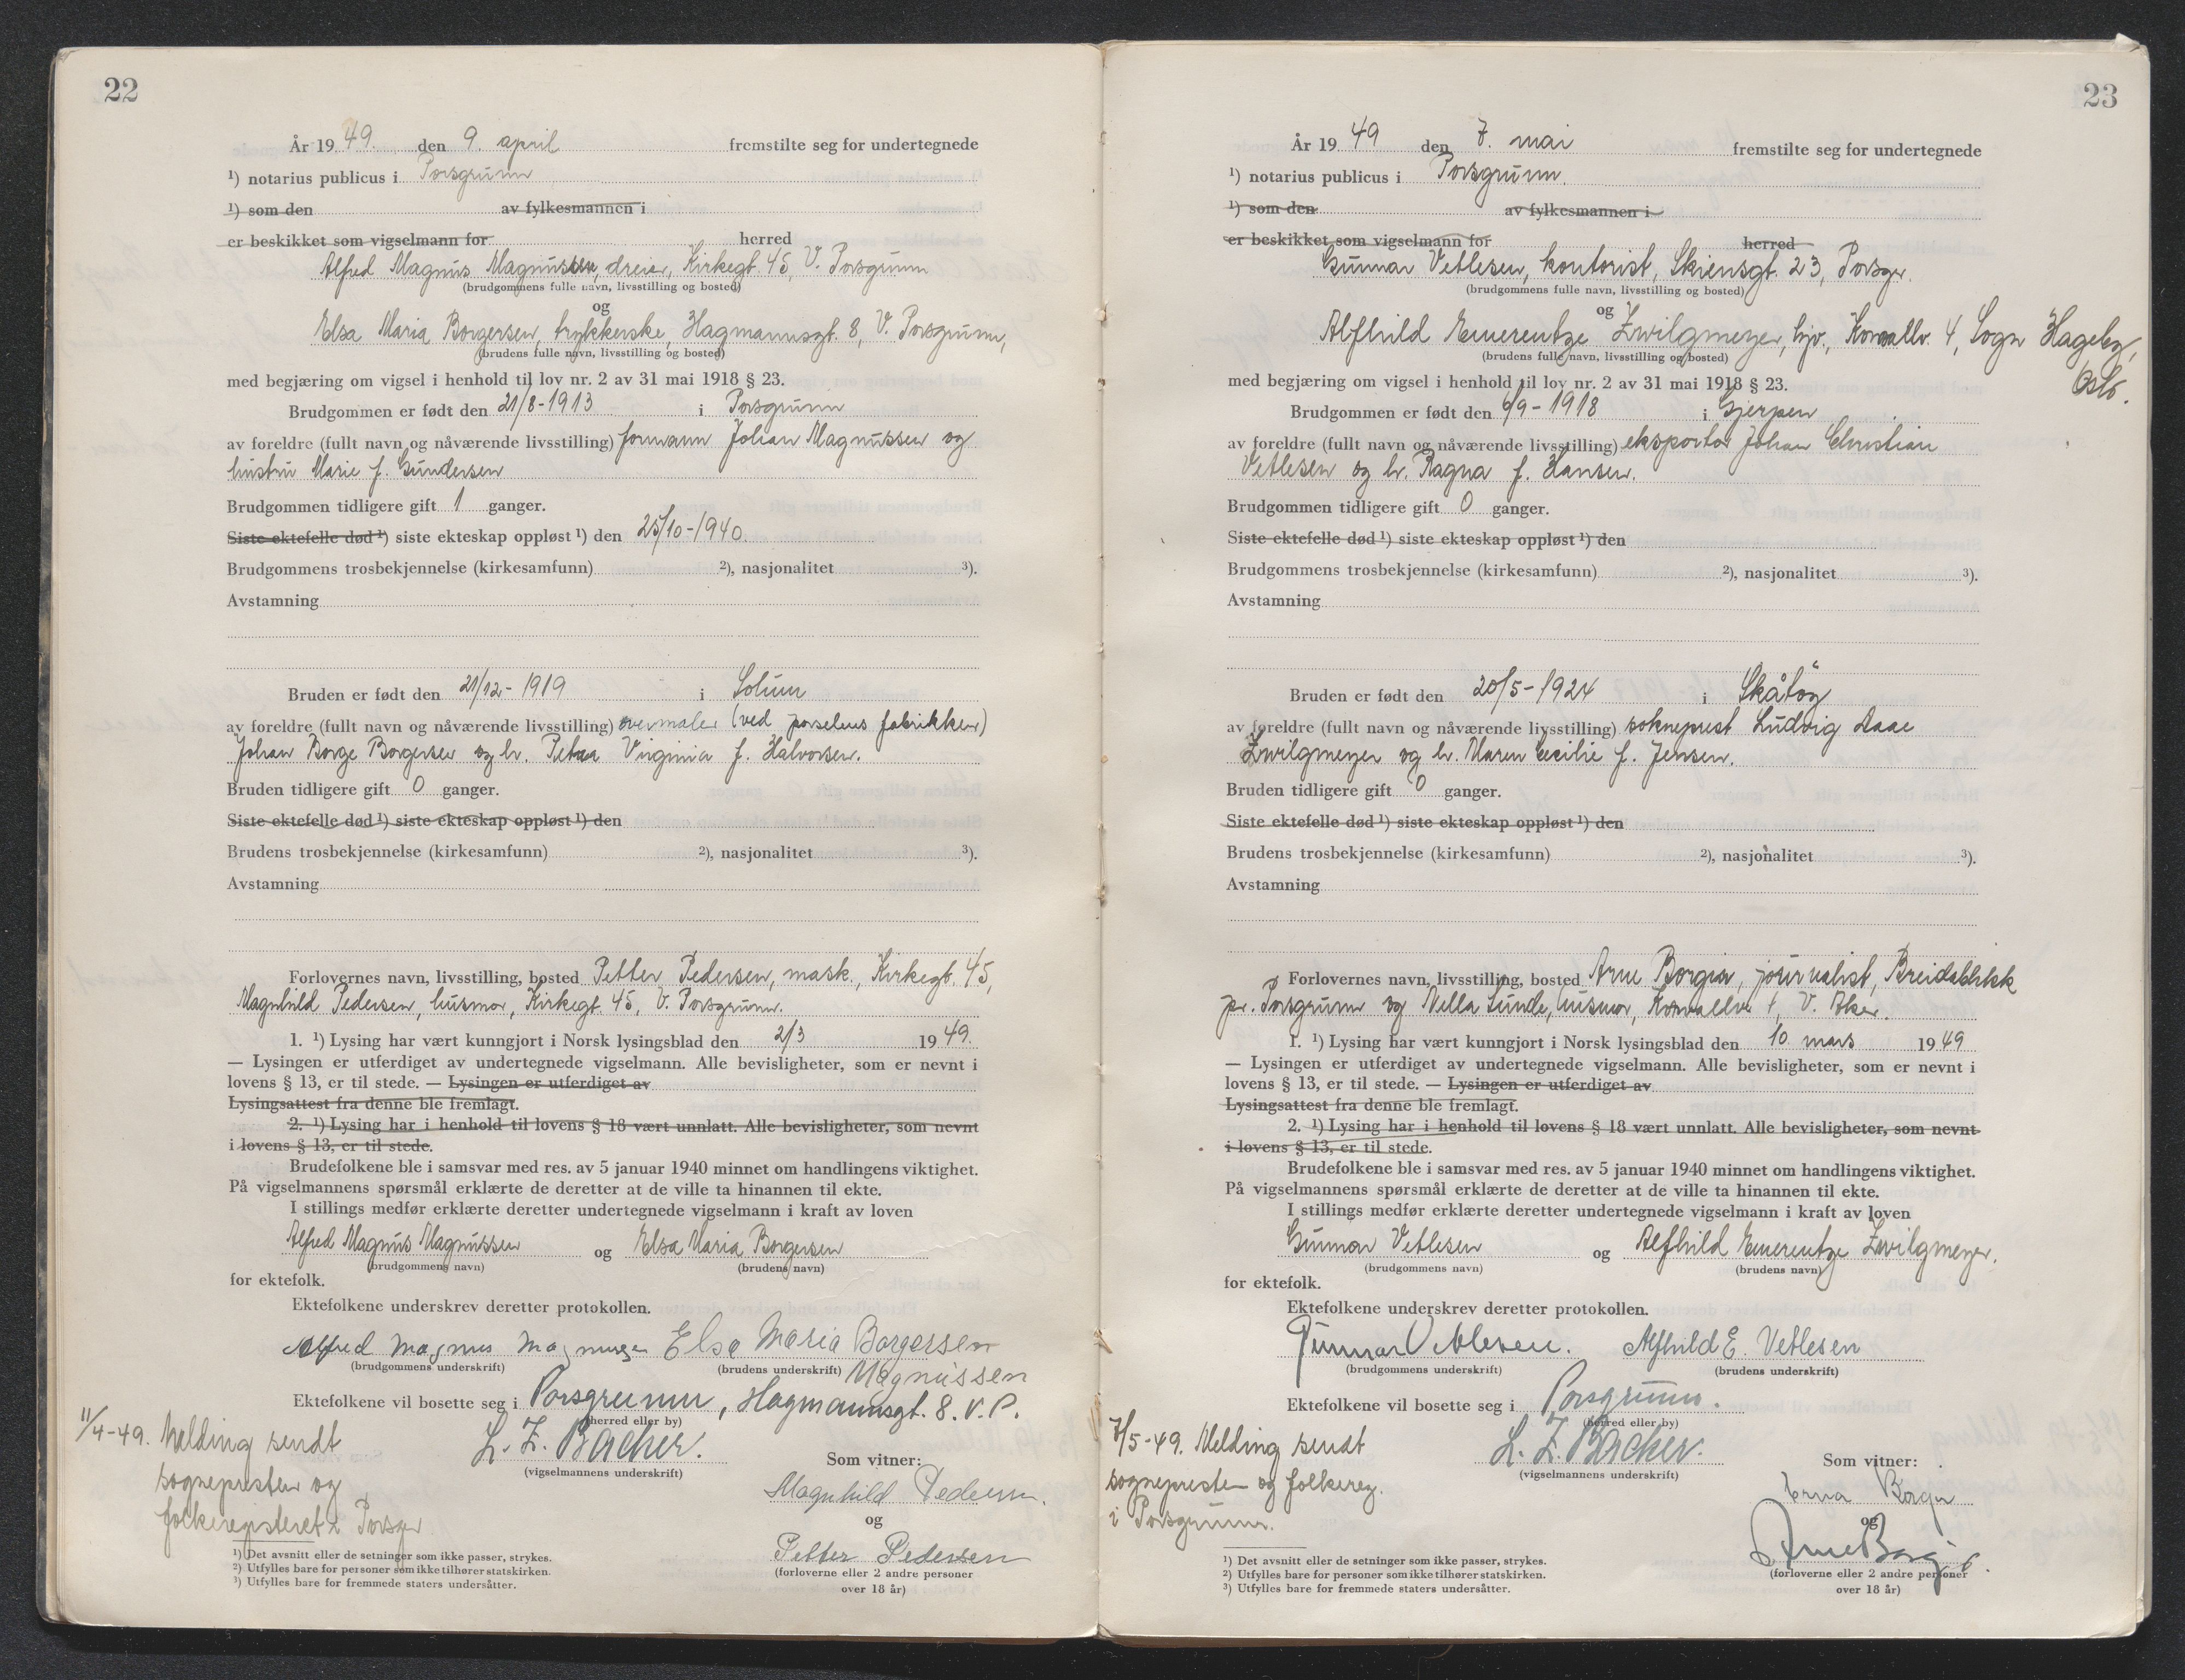 22
År 19 49. den 9. april fremstilte seg for undertegnede
¹) notarius publicus i Porsgrunn
¹) som den av fylkesmannen i
er beskikket som vigselmann for herred
Alfred Magnus Magnussen, dreier, Kirkegt. 45, V. Porsgrunn
(brudgommens fulle navn, livsstilling og bosted)
og
Elsa Maria Borgersen, trykkerske, Hagmannsgt. 8, V. Porsgrunn,
(brudens fulle navn, livsstilling og bosted)
med begjæring om vigsel i henhold til lov nr. 2 av 31 mai 1918 § 23.
Brudgommen er født den 21/8-1913 i Porsgrunn
av foreldre (fullt navn og nåværende livsstilling) formann Johan Magnussen og
hustru Marie f. Gundersen
Brudgommen tidligere gift 1 ganger.
Siste ektefelle død ¹) siste ekteskap oppløst ¹) den 25/10-1940.
Brudgommens trosbekjennelse (kirkesamfunn) ²), nasjonalitet ³).
Avstamning
Bruden er født den 21/12-1919 i Solum
av foreldre (fullt navn og nåværende livsstilling) overmaler (ved porselensfabrikken)
Johan Borge Borgersen og h. Petra Virginia f. Halvorsen.
Bruden tidligere gift 0 ganger.
Siste ektefelle død ¹) siste ekteskap oppløst ¹) den
Brudens trosbekjennelse (kirkesamfunn) ²), nasjonalitet ³).
Avstamning
Forlovernes navn, livsstilling, bosted Petter Pedersen, mask., Kirkegt. 45,
Magnhild Pedersen, husmor, Kirkegt. 45, V. Porsgrunn.
1. ¹) Lysing har vært kunngjort i Norsk lysingsblad den 2/3 19 49.
— Lysingen er utferdiget av undertegnede vigselmann. Alle bevisligheter, som er nevnt i
lovens § 13, er til stede. — Lysingen er utferdiget av
Lysingsattest fra denne ble fremlagt.
2. ¹) Lysing har i henhold til lovens § 18 vært unnlatt. Alle bevisligheter, som nevnt
i lovens § 13, er til stede.
Brudefolkene ble i samsvar med res. av 5 januar 1940 minnet om handlingens viktighet.
På vigselmannens spørsmål erklærte de deretter at de ville ta hinannen til ekte.
I stillings medfør erklærte deretter undertegnede vigselmann i kraft av loven
Alfred Magnus Magnussen og Elsa Maria Borgersen
(brudgommens navn) (brudens navn)
for ektefolk.
Ektefolkene underskrev deretter protokollen.
Alfred Magnus Magnussen Elsa Maria Borgersen
(brudgommens underskrift) (brudens underskrift) Magnussen
Ektefolkene vil bosette seg i Porsgrunn, Hagmannsgt. 8. V.P.
(herred eller by)
11/4-49. Melding sendt
sognepresten og
folkeregisteret i Porsgr.
L. Z. Backer.
(vigselmannens underskrift)
Som vitner:
Magnhild Pedersen.
og
Petter Pedersen
(forloverne eller 2 andre personer
over 18 år)
¹) Det avsnitt eller de setninger som ikke passer, strykes.
²) Utfylles bare for personer som ikke tilhører statskirken.
³) Utfylles bare for fremmede staters undersåtter.
23
År 19 49 den 7. mai fremstilte seg for undertegnede
¹) notarius publicus i Porsgrunn.
¹) som den av fylkesmannen i
er beskikket som vigselmann for herred
Gunnar Vetlesen, kontorist, Skiensgt. 23, Porsgr.
(brudgommens fulle navn, livsstilling og bosted)
og
Alfhild Emerentze Zwilgmeyer, hjv., Konvallv. 4, Sogn Hageby,
Oslo.
(brudens fulle navn, livsstilling og bosted)
med begjæring om vigsel i henhold til lov nr. 2 av 31 mai 1918 § 23.
Brudgommen er født den 6/9-1918 i Gjerpen
av foreldre (fullt navn og nåværende livsstilling) eksportør Johan Christian
Vetlesen og h. Ragna f. Hansen.
Brudgommen tidligere gift 0 ganger.
Siste ektefelle død ¹) siste ekteskap oppløst ¹) den
Brudgommens trosbekjennelse (kirkesamfunn) ²), nasjonalitet ³).
Avstamning
Bruden er født den 20/5-1924 i Skåtøy
av foreldre (fullt navn og nåværende livsstilling) sokneprest Ludvig Aaae
Zwilgmeyer og h. Maren Cecilie f. Jensen.
Bruden tidligere gift 0 ganger.
Siste ektefelle død ¹) siste ekteskap oppløst ¹) den
Brudens trosbekjennelse (kirkesamfunn) ²), nasjonalitet ³).
Avstamning
Forlovernes navn, livsstilling, bosted Arne Borgir, journalist, Breidablikk
pr. Porsgrunn og Nella Sunde, husmor, Konvallv. 1, V. Aker.
1. ¹) Lysing har vært kunngjort i Norsk lysingsblad den 10. mars 19 49
— Lysingen er utferdiget av undertegnede vigselmann. Alle bevisligheter, som er nevnt i
lovens § 13, er til stede. — Lysingen er utferdiget av
Lysingsattest fra denne ble fremlagt.
2. ¹) Lysing har i henhold til lovens § 18 vært unnlatt. Alle bevisligheter, som nevnt
i lovens § 13, er til stede.
Brudefolkene ble i samsvar med res. av 5 januar 1940 minnet om handlingens viktighet.
På vigselmannens spørsmål erklærte de deretter at de ville ta hinannen til ekte.
I stillings medfør erklærte deretter undertegnede vigselmann i kraft av loven
Gunnar Vetlesen og Alfhild Emerentze Zwilgmeyer.
(brudgommens navn) (brudens navn)
for ektefolk.
Ektefolkene underskrev deretter protokollen.
Gunnar Vetlesen. Alfhild E. Vetlesen
(brudgommens underskrift) (brudens underskrift)
Ektefolkene vil bosette seg i Porsgrunn.
(herred eller by)
7/5-49. Melding sendt
sognepresten og folkereg.
i Porsgrunn.
L. Z. Backer.
(vigselmannens underskrift)
Som vitner:
Erna Borgir
og
Arne Borgir.
(forloverne eller 2 andre personer
over 18 år)
¹) Det avsnitt eller de setninger som ikke passer, strykes.
²) Utfylles bare for personer som ikke tilhører statskirken.
³) Utfylles bare for fremmede staters undersåtter.